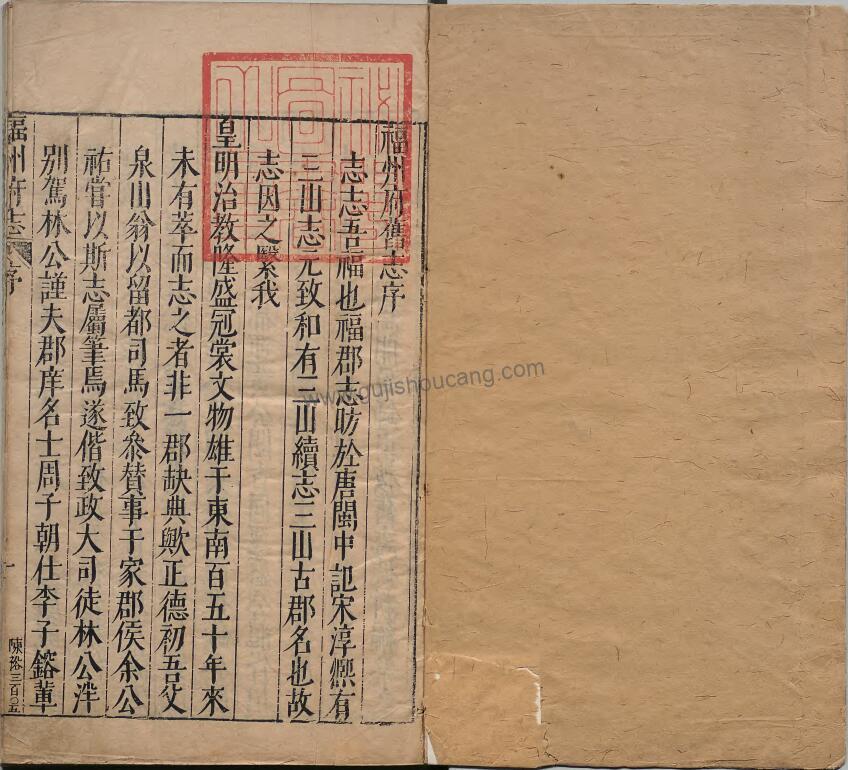 福州府舊志序
志志吾福也福郡志昉於唐閩中記宋淳熈有
三山志元致和有三山續志三山古郡名也故
志因之繄我
皇明治教隆盛冠裳文物雄于東南百五十年來
未有萃而志之者非一郡缺典歟正德初吾父
泉山翁以留都司馬致叅賛事于家郡侯余公
祐嘗以斯志屬筆焉遂偕致政大司徒林公泮
别駕林公謹夫郡庠名士周子朝仕李子鎔軰
福州府志
序
一
陳裕三百〇五
www.gujishoucang.com